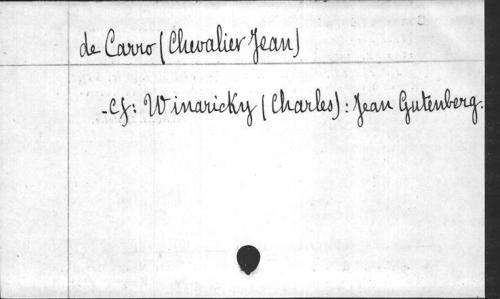 de Carro (Chevalier Jean)
-Cf: Winaricky (Charles): Jean Gutenberg.